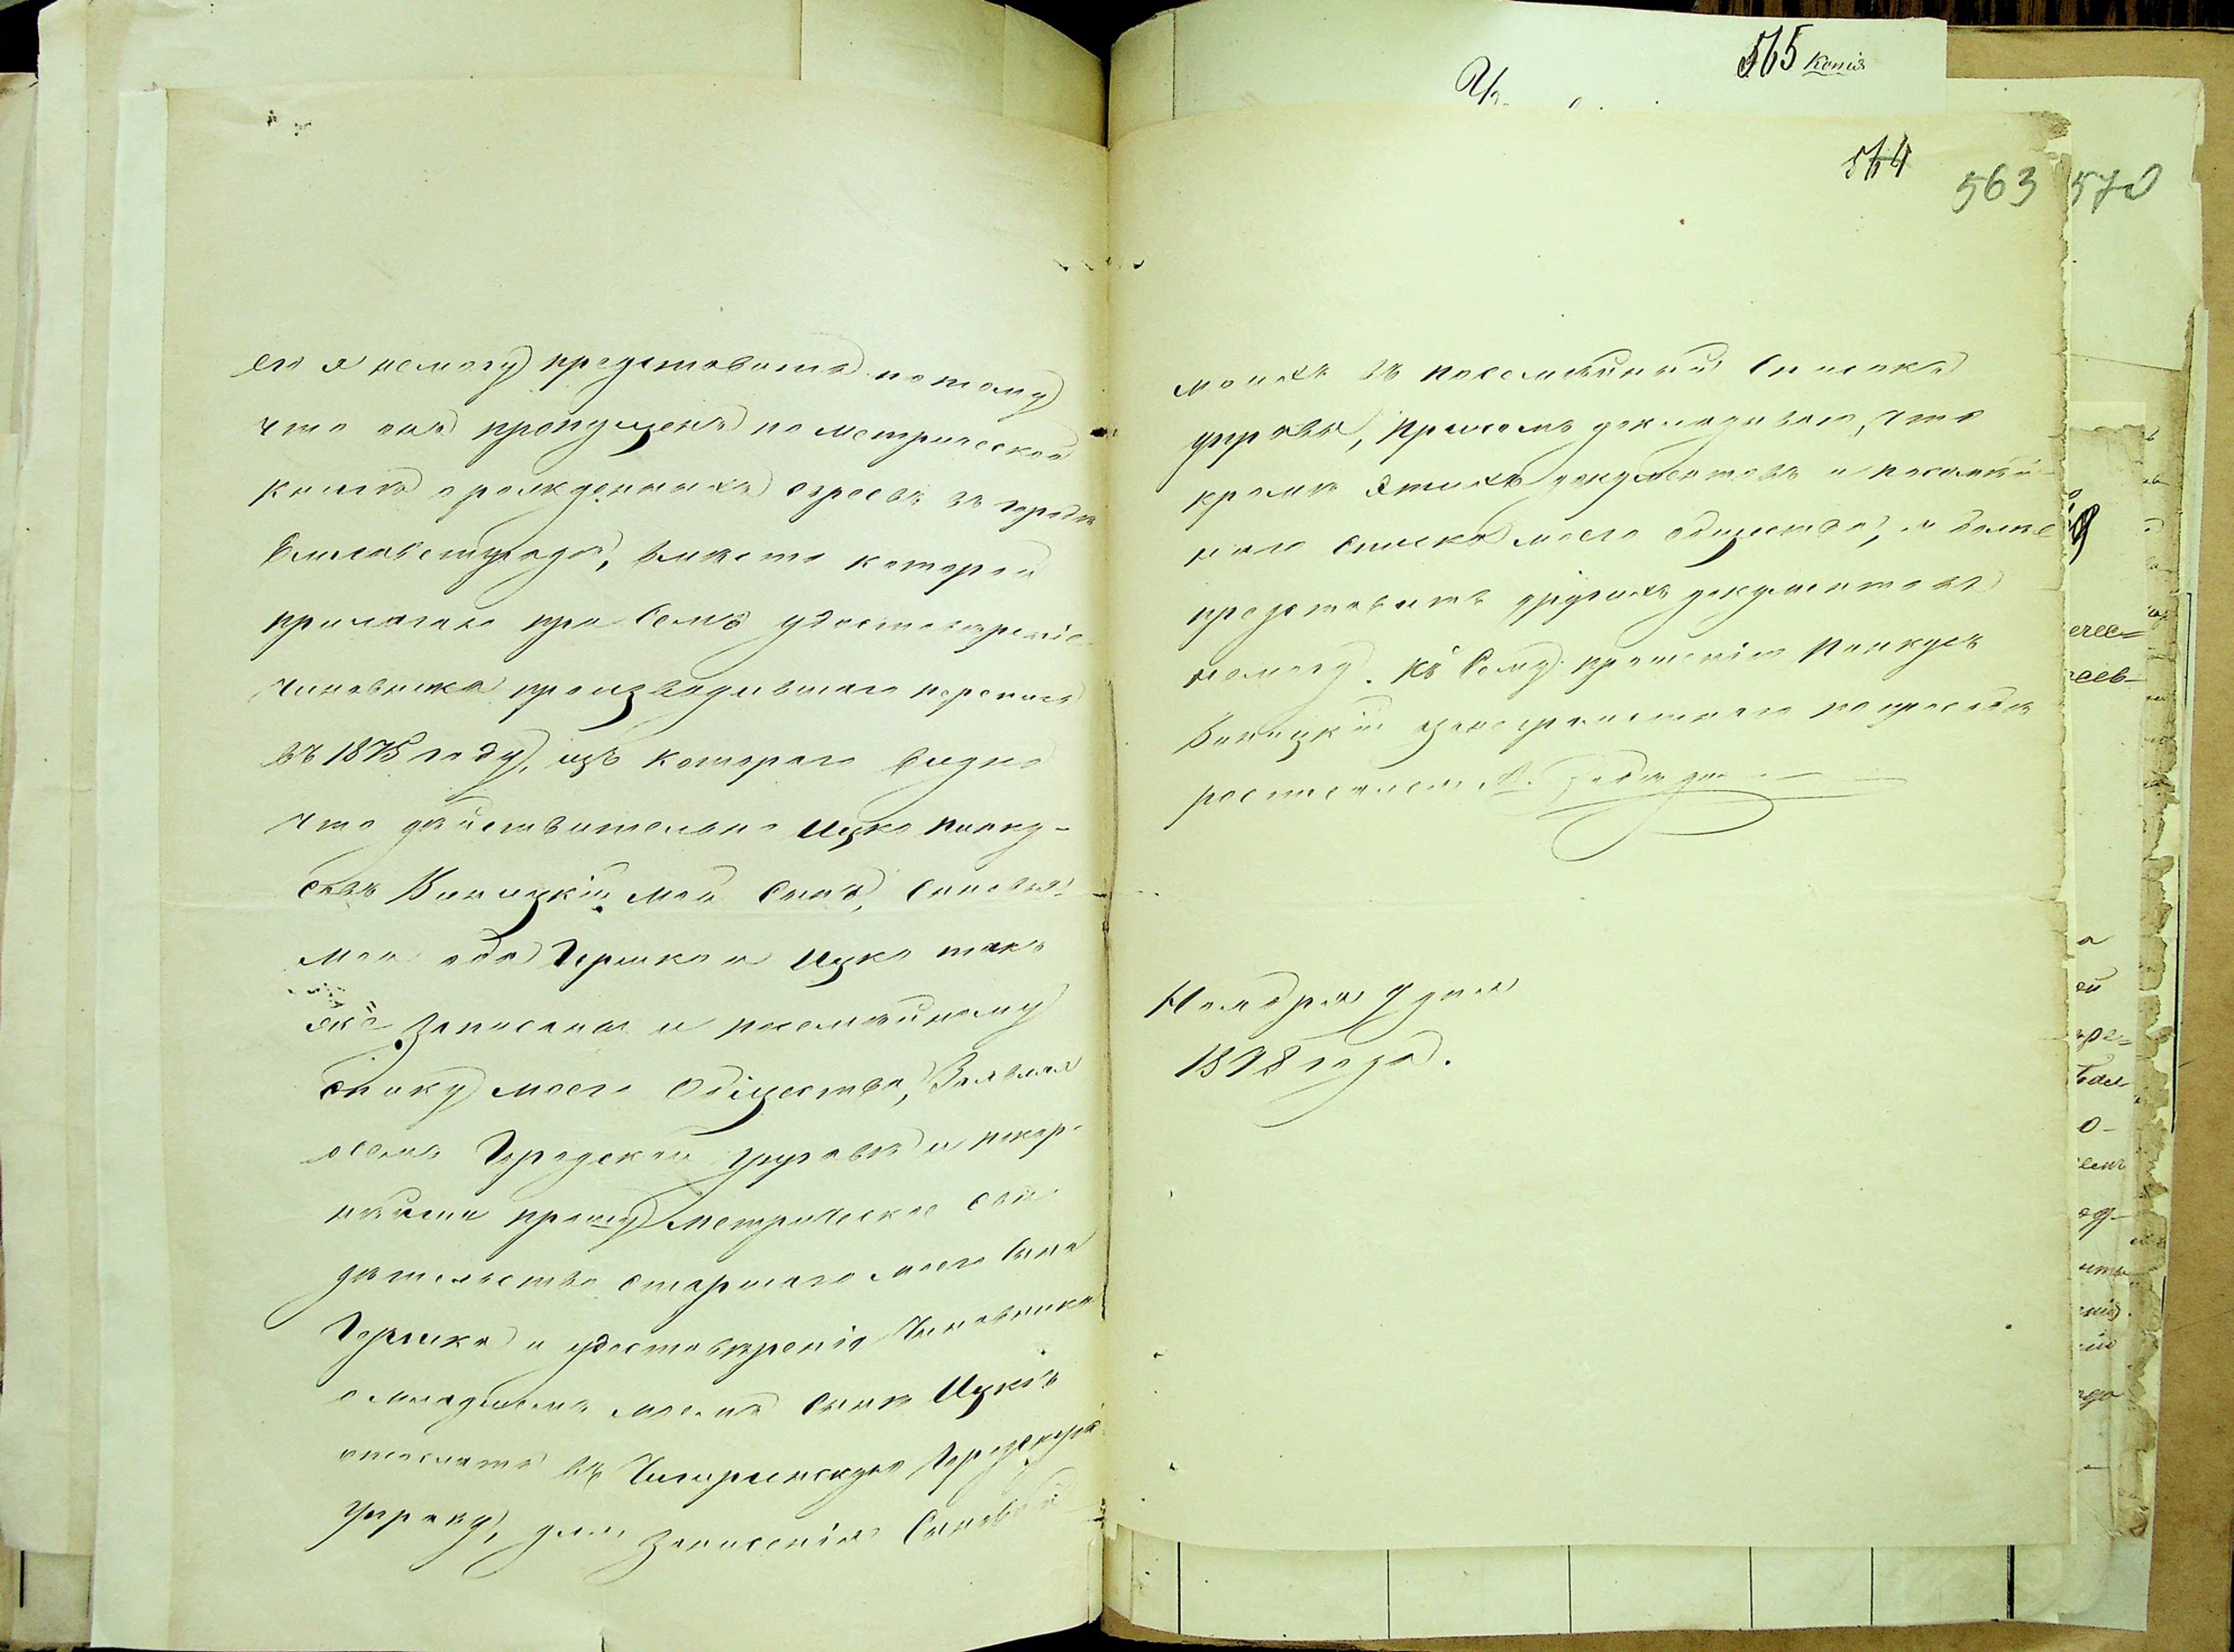 его я не могу представить потому
что онъ пропущенъ по метрической
книгѣ о рожденныхъ евреевъ въ городѣ
Елисаветградѣ, вмѣсто которой
прилагаю при семъ удостовѣреніе
чиновника производившаго перепись
въ 1875 году, изъ котораго видно
что дѣйствительно Ицко Пинку-
совъ Виницкій мой сынъ, сыновья
мои оба Гершко и Ицко так-
же записаны и посемейному
списку моего общества, Заявляя
о семъ Городской управѣ и покор-
нѣйше прошу метрическое сви-
дѣтельство старшаго моего сына
Гершка и удостовѣреніе чиновника
о младшемъ моемъ сынѣ Ицкѣ
отослать въ Чигиринскую Городскую
управу, для записанія сыновей
565 Копія
564
563 570
моихъ въ посемейный списокъ
управы, причемъ докладываю, что
кромѣ этихъ документовъ и посемей-
наго списка моего общества, я болѣе
представить другихъ документовъ
не могу. Къ сему прошенію Пинкусъ
Виницкій
Ноября 7 дня
1878 года.